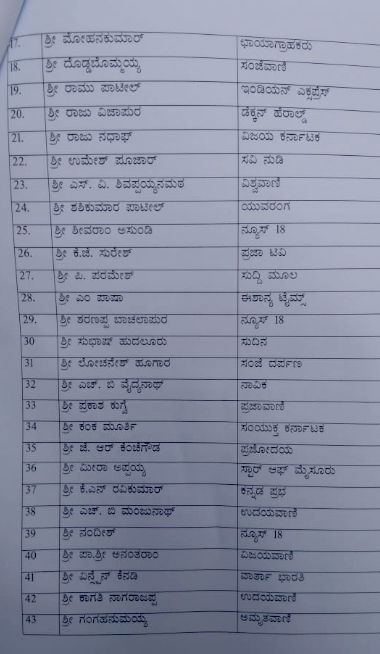 17. ಶ್ರೀ ಮೋಹನಕುಮಾರ್ ಛಾಯಾಗ್ರಾಹಕರು
18. ಶ್ರೀ ದೊಡ್ಡಬೊಮ್ಮಯ್ಯ ಸಂಜೆವಾಣಿ
19. ಶ್ರೀ ರಾಮು ಪಾಟೀಲ್ ಇಂಡಿಯನ್ ಎಕ್ಸಪ್ರೆಸ್
20. ಶ್ರೀ ರಾಜು ವಿಜಾಪುರ ಡೆಕ್ಕನ್ ಹೆರಾಲ್ಡ್
21. ಶ್ರೀ ರಾಜು ನಧಾಫ್ ವಿಜಯ ಕರ್ನಾಟಕ
22. ಶ್ರೀ ಉಮೇಶ್ ಪೂಜಾರ್ ಸವಿ ನುಡಿ
23. ಶ್ರೀ ಎಸ್. ವಿ. ಶಿವಪ್ಪಯ್ಯನಮಠ ವಿಶ್ವವಾಣಿ
24. ಶ್ರೀ ಶಶಿಕುಮಾರ ಪಾಟೀಲ್ ಯುವರಂಗ
25. ಶ್ರೀ ಶೀವರಾಂ ಅಸುಂಡಿ ನ್ಯೂಸ್ 18
26. ಶ್ರೀ ಕೆ.ಜಿ. ಸುರೇಶ್ ಪ್ರಜಾ ಟಿವಿ
27. ಶ್ರೀ ಪಿ. ಪರಮೇಶ್ ಸುದ್ದಿ ಮೂಲ
28. ಶ್ರೀ ಎಂ ಪಾಷಾ ಈಶಾನ್ಯ ಟೈಮ್ಸ್
29. ಶ್ರೀ ಶರಣಪ್ಪ ಬಾಚಲಾಪುರ ನ್ಯೂಸ್ 18
30 ಶ್ರೀ ಸುಭಾಷ್ ಹುದಲೂರು ಸುದಿನ
31 ಶ್ರೀ ಲೋಚನೇಶ್ ಹೂಗಾರ ಸಂಜೆ ದರ್ಪಣ
32 ಶ್ರೀ ಎಚ್. ಬಿ ವೈದ್ಯನಾಥ್ ನಾವಿಕ
33 ಶ್ರೀ ಪ್ರಕಾಶ ಕುಗ್ವೆ ಪ್ರಜಾವಾಣಿ
34 ಶ್ರೀ ಕಂಕ ಮೂರ್ತಿ ಸಂಯುಕ್ತ ಕರ್ನಾಟಕ
35 ಶ್ರೀ ಜಿ. ಆರ್ ಕೆಂಚೆಗೌಡ ಪ್ರಜೋದಯ
36 ಶ್ರೀ ಮೀರಾ ಅಪ್ಪಯ್ಯ ಸ್ಟಾರ್ ಆಫ್ ಮೈಸೂರು
37 ಶ್ರೀ ಕೆ.ಎನ್ ರವಿಕುಮಾರ್ ಕನ್ನಡ ಪ್ರಭ
38 ಶ್ರೀ ಎಚ್. ಬಿ ಮಂಜುನಾಥ್ ಉದಯವಾಣಿ
39 ಶ್ರೀ ನಂದೀಶ್ ನ್ಯೂಸ್ 18
40 ಶ್ರೀ ಪಾ.ಶ್ರೀ ಅನಂತರಾಂ ವಿಜಯವಾಣಿ
41 ಶ್ರೀ ವಿನ್ಸೆನ್ ಕೆನಡಿ ವಾರ್ತಾ ಭಾರತಿ
42 ಶ್ರೀ ಕಾಗತಿ ನಾಗರಾಜಪ್ಪ ಉದಯವಾಣಿ
43 ಶ್ರೀ ಗಂಗಹನುಮಯ್ಯ ಅಮೃತವಾಣಿ